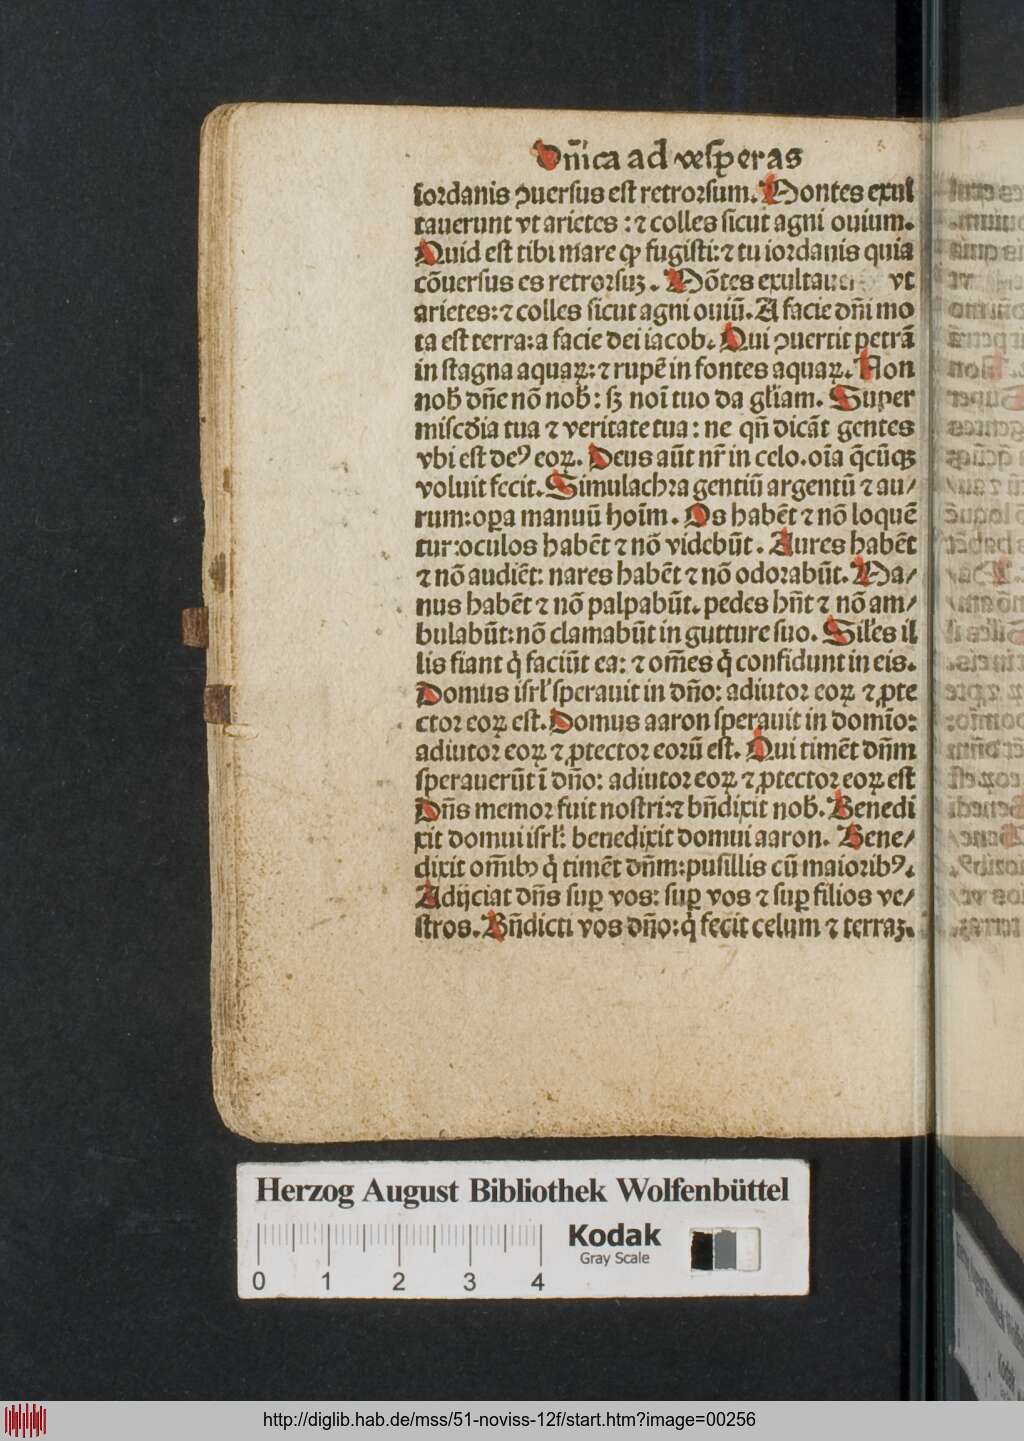 Dn̄ica ad vesperas
Iordanis ꝯuersus est retrorsum. Montes exul
tauerunt vt arietes : ⁊ colles sicut agni ouium.
Quid est tibi mare ꝙ fugisti: ⁊ tu iordanis quia
cōuersus es retrorsuꝫ. Mōtes exultaue vt
arietes: ⁊ colles sicut agni ouiū. A facie dn̄i mo
ta est terra: a facie dei iacob. Qui ꝯuertit petrā
in stagna aquaꝝ: ⁊ rupē in fontes aquaꝝ. Non
nob̄ dn̄e nō nob̄: sꝫ noı̄ tuo da gl'iam. Super
misc̄dia tua ⁊ veritate tua : ne qn̄ dicāt gentes
vbi est deꝰ eoꝝ. Deus aūt nr̄ in celo. oı̄a q̄cūqꝫ
voluit fecit. Simulachra gentiū argentū ⁊ au/
rum: oꝑa manuū hoı̄m. Os habēt ⁊ nō loquē
tur: oculos habēt ⁊ nō videbūt. Aures habēt
⁊ nō audiēt: nares habēt ⁊ nō odorabūt. Ma/
nus habēt ⁊ nō palpabūt. pedes hn̄t ⁊ nō am/
bulabūt: nō clamabūt in gutture suo. Sil'es il
lis fiant q̇ faciūt ea: ⁊ om̄es q̇ confidunt in eis.
Domus isrl' sperauit in dn̄o: adiutor eoꝝ ⁊ ꝓte
ctor eoꝝ est. Domus aaron sperauit in domı̄o:
adiutor eoꝝ ⁊ ꝓtector eorū est. Qui timēt dn̄m
sperauerūt ı̄ dn̄o: adiutor eoꝝ ⁊ ꝓtector eoꝝ est
Dn̄s memor fuit nostri: ⁊ bn̄dixit nob̄. Benedi
xit domui isrl': benedixit domui aaron. Bene/
dixit om̄ibꝰ q̇ timēt dn̄m: pusillis cū maioribꝰ.
Adijciat dn̄s suꝑ vos: suꝑ vos ⁊ suꝑ filios ve/
stros. Bn̄dicti vos dn̄o: q̇ fecit celum ⁊ terraꝫ.
Herzog August Bibliothek Wolfenbüttel
Kodak
Gray Scale
0 1 2 3 4
http://diglib.hab.de/mss/51-noviss-12f/start.htm?image=00256